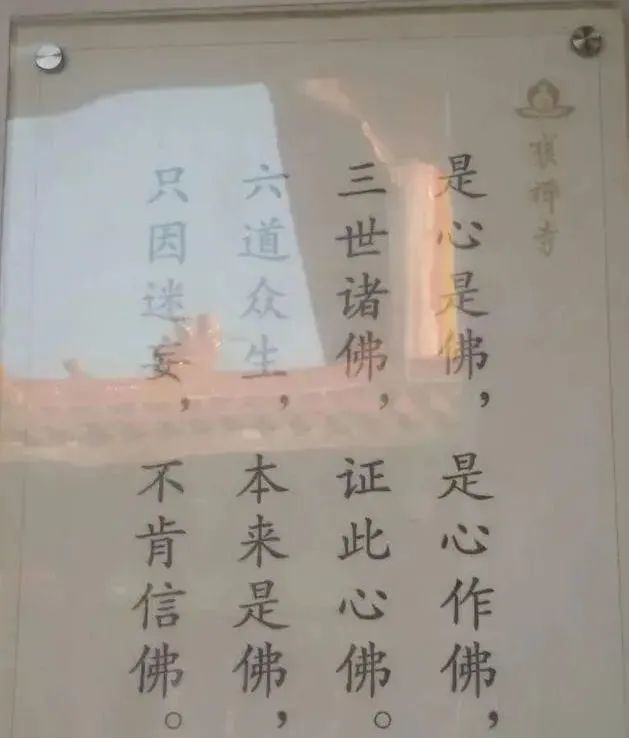 是心是佛，是心作佛，
三世诸佛，证此心佛。
六道众生，本来是佛，
只因迷妄，不肯信佛。